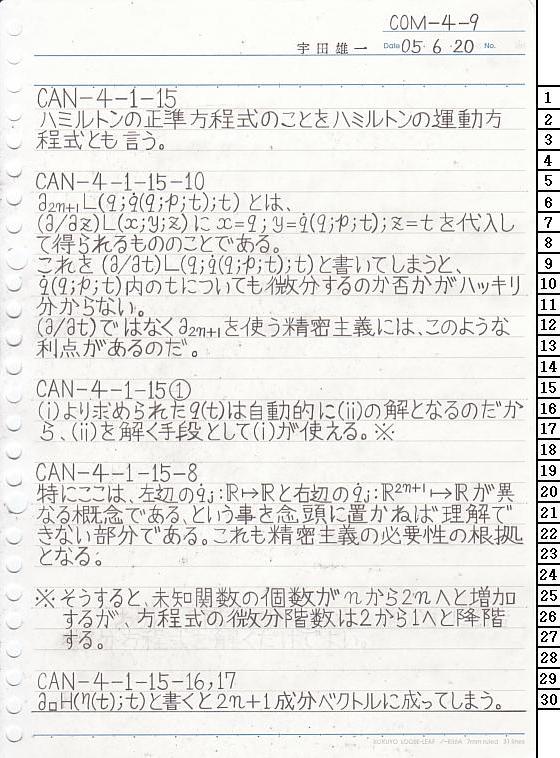 COM-4-9
宇田雄一 Date 05・6・20 No.
CAN-4-1-15
ハミルトンの正準方程式のことをハミルトンの運動方
程式とも言う。
CAN-4-1-15-10
∂₂ₙ₊₁L(q;q̇(q;p;t);t)とは、
(∂/∂z)L(x;y;z)にx=q;y=q̇(q;p;t);z=tを代入し
て得られるもののことである。
これを(∂/∂t)L(q;q̇(q;p;t);t)と書いてしまうと、
q̇(q;p;t)内のtについても微分するのか否かがハッキリ
分からない。
(∂/∂t)ではなく∂₂ₙ₊₁を使う精密主義には、このような
利点があるのだ。
CAN-4-1-15①
(i)より求められたq(t)は自動的に(ii)の解となるのだか
ら、(ii)を解く手段として(i)が使える。※
CAN-4-1-15-8
特にここは、左辺のq̇ⱼ:ℝ↦ℝと右辺のq̇ⱼ:ℝ²ⁿ⁺¹↦ℝが異
なる概念である、という事を念頭に置かねば理解で
きない部分である。これも精密主義の必要性の根拠
となる。
※そうすると、未知関数の個数がnから2nへと増加
するが、方程式の微分階数は2から1へと降階
する。
CAN-4-1-15-16,17
∂□H(η(t);t)と書くと2n+1成分ベクトルに成ってしまう。
KOKUYO LOOSE-LEAF ノ-836A 7mm ruled 31 lines
1
2
3
4
5
6
7
8
9
10
11
12
13
14
15
16
17
18
19
20
21
22
23
24
25
26
27
28
29
30